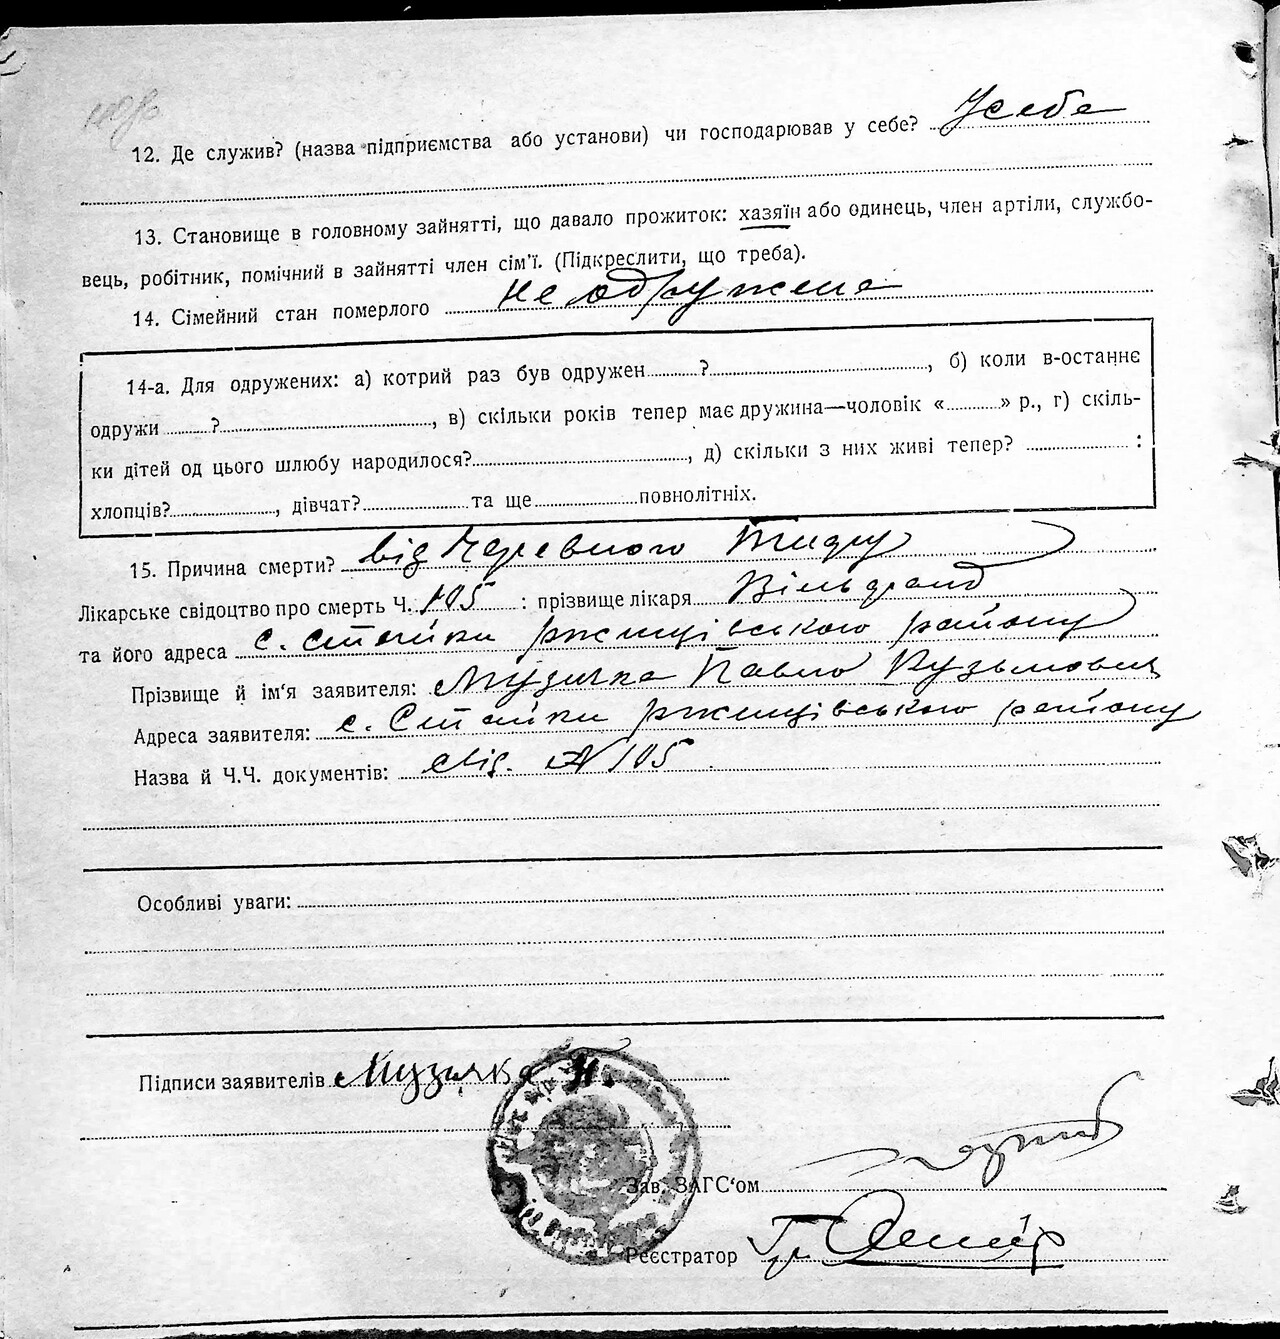 12. Де служив? (назва підприємства або установи) чи господарював у себе? У себе
13. Становище в головному зайнятті, що давало прожиток: хазяїн або одинець, член артіли, службо-
вець, робітник, помічний в зайнятті член сім'ї. (Підкреслити, що треба).
14. Сімейний стан померлого не одружена
14-а. Для одружених: а) котрий раз був одружен............?............, б) коли в-останнє
одружи............?............, в) скільки років тепер має дружина—чоловік «............» р., г) скіль-
ки дітей од цього шлюбу народилося?............, д) скільки з них живі тепер? ............:
хлопців?............, дівчат?............та ще............повнолітніх.
15. Причина смерти? від Черевного Тифу
Лікарське свідоцтво про смерть Ч. 105 : прізвище лікаря
та його адреса с. Стайки ржищівського району
Прізвище й ім'я заявителя: Музичка Павло Кузьмович
Адреса заявителя: с. Стайки ржищівського району
Назва й Ч.Ч. документів: свід. № 105
Особливі уваги:
Підписи заявителів Музичка
Зав. ЗАГС'ом
Реєстратор